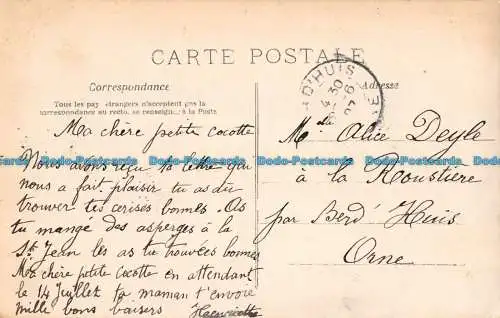 CARTE POSTALE
D'HUIS
4 30
Correspondance
Adresse
Tous les pays étrangers n'acceptent pas la
correspondance au recto, se renseigner à la Poste
Ma chère petite cocotte
Nous avons reçu ta lettre qui
nous a fait plaisir tu as du
trouver tes cerises bonnes. As
tu mangé des asperges à la
St Jean les as tu trouvées bonnes
Ma chère petite Cocotte en attendant
le 14 Juillet ta maman t'envoie
mille bons baisers Henriette
Mlle Alice Deyle
à la Roustière
par Berd' Huis
Orne
Dodo-Postcards.com